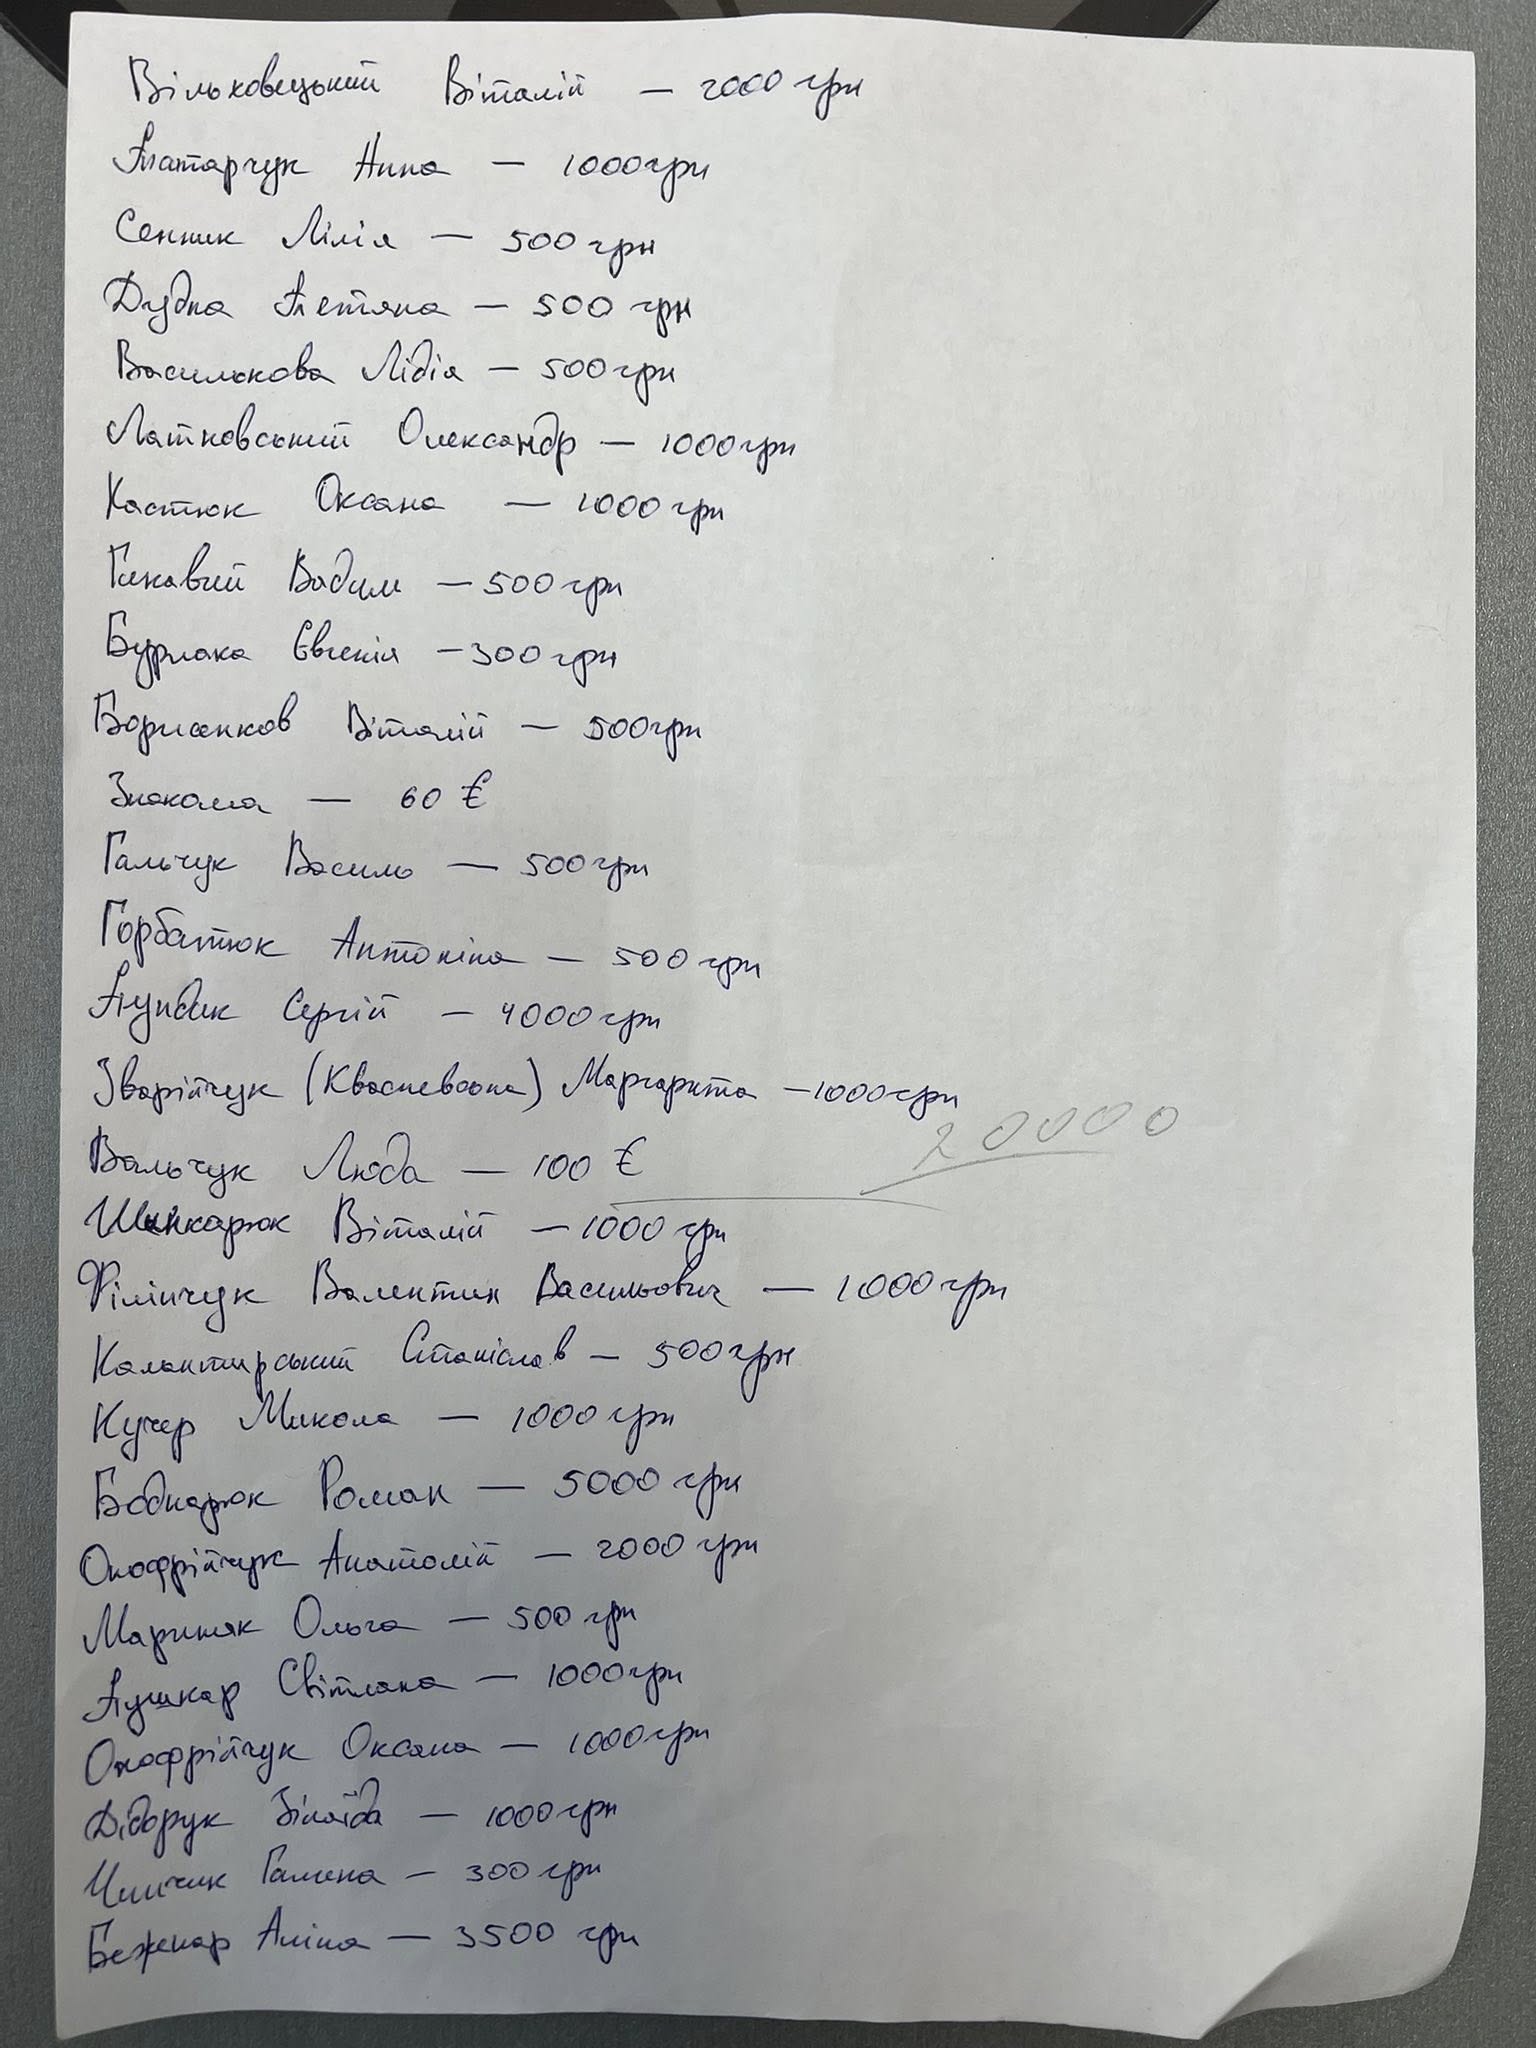 Вільховецький Віталій — 2000 грн
Татарчук Інна — 1000 грн
Сенник Лілія — 500 грн
Дудка Тетяна — 500 грн
Василькова Лідія — 500 грн
Латковський Олександр — 1000 грн
Костюк Оксана — 1000 грн
Гикавий Вадим — 500 грн
Бурлака Євгенія — 300 грн
Борисенков Віталій — 500 грн
Знакома — 60 €
Гальчук Василь — 500 грн
Горбатюк Антоніна — 500 грн
Пундик Сергій — 4000 грн
Зварійчук (Квасневська) Маргарита — 1000 грн
20000
Вальчук Люда — 100 €
Шинкарюк Віталій — 1000 грн
Філінчук Валентин Васильович — 1000 грн
Калантирський Станіслав — 500 грн
Кучер Микола — 1000 грн
Боднарюк Роман — 5000 грн
Онофрійчук Анатолій — 2000 грн
Мариняк Ольга — 500 грн
Пушкар Світлана — 1000 грн
Онофрійчук Оксана — 1000 грн
Дідорук Зінаїда — 1000 грн
Галина — 300 грн
Беженар Аліна — 3500 грн